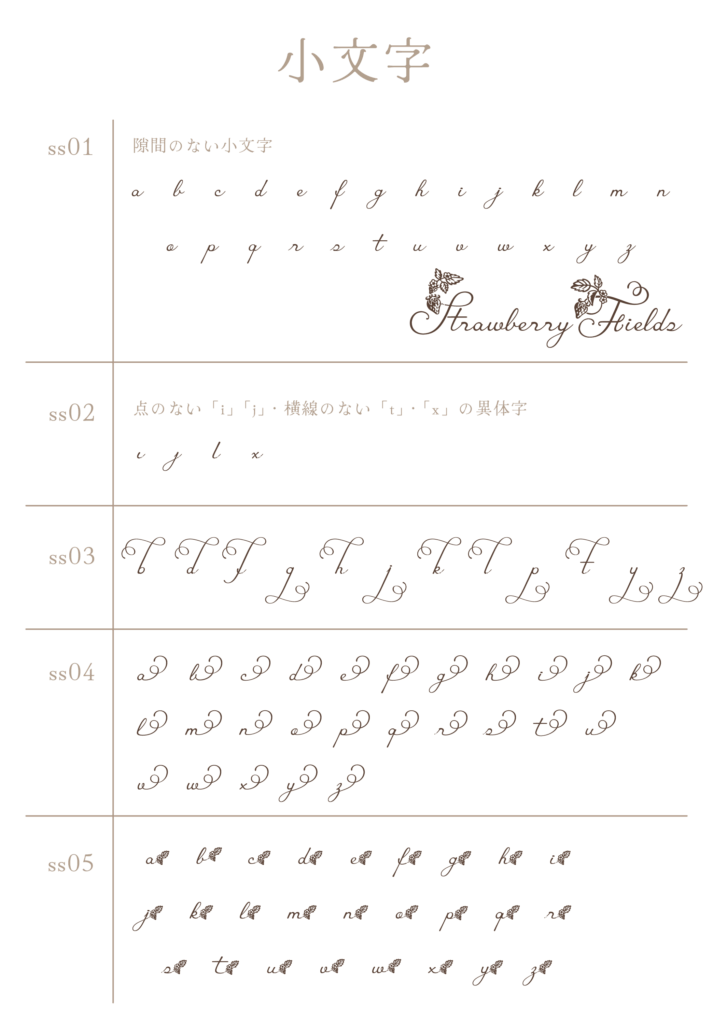 小文字
ss01
隙間のない小文字
a b c d e f g h i j k l m n
o p q r s t u v w x y z
Strawberry Fields
ss02
点のない「i」「j」・横線のない「t」・「x」の異体字
ı ȷ l x
ss03
b d f g h j k l p t y z
ss04
a b c d e f g h i j k
l m n o p q r s t u
v w x y z
ss05
a b c d e f g h i
j k l m n o p q r
s t u v w x y z